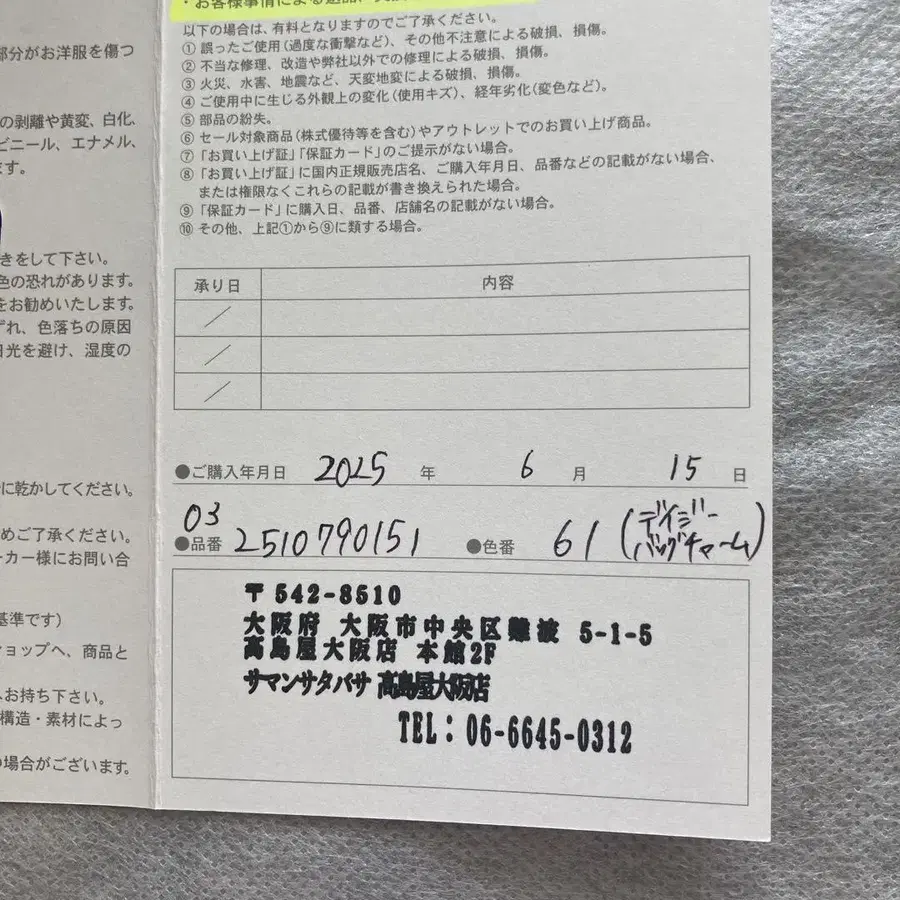 部分がお洋服を傷つ
の剥離や黄変、白化、
ビニール、エナメル、
ます。
きをして下さい。
色の恐れがあります。
をお勧めいたします。
ずれ、色落ちの原因
日光を避け、湿度の
に乾かしてください。
めご了承ください。
ーカー様にお問い合
基準です)
ショップへ、商品と
お持ち下さい。
構造・素材によっ
場合がございます。
・お客様事情による返品、
以下の場合は、有料となりますのでご了承ください。
① 誤ったご使用(過度な衝撃など)、その他不注意による破損、損傷。
② 不当な修理、改造や弊社以外での修理による破損、損傷。
③ 火災、水害、地震など、天変地変による破損、損傷。
④ ご使用中に生じる外観上の変化(使用キズ)、経年劣化(変色など)。
⑤ 部品の紛失。
⑥ セール対象商品(株式優待等を含む)やアウトレットでのお買い上げ商品。
⑦ 「お買い上げ証」「保証カード」のご提示がない場合。
⑧ 「お買い上げ証」に国内正規販売店名、ご購入年月日、品番などの記載がない場合、
または権限なくこれらの記載が書き換えられた場合。
⑨ 「保証カード」に購入日、品番、店舗名の記載がない場合。
⑩ その他、上記①から⑨に類する場合。
承り日 内容
／
／
／
●ご購入年月日 2025 年 6 月 15 日
03
●品番 2510790151 ●色番 61 (デイジーバッグチャーム)
〒542-8510
大阪府 大阪市中央区難波 5-1-5
髙島屋大阪店 本館2F
サマンサタバサ 髙島屋大阪店
TEL: 06-6645-0312